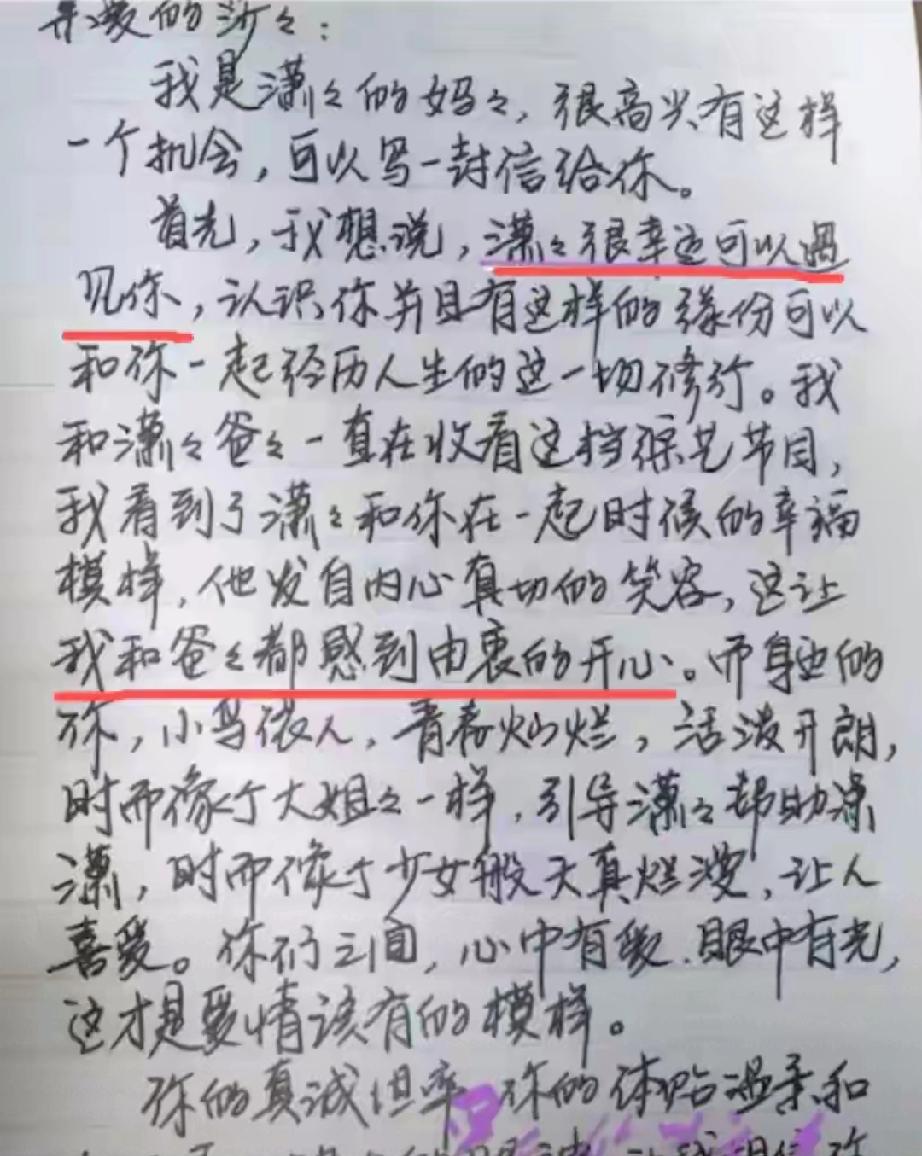 亲爱的沙々:
我是潇々的妈々，很高兴有这样
一个机会，可以写一封信给你。
首先，我想说，潇々很幸运可以遇
见你，认识你并且有这样的缘份可以
和你一起经历人生的这一切修行。我
和潇々爸々一直在收看这档综艺节目，
我看到了潇々和你在一起时候的幸福
模样，他发自内心真切的笑容，这让
我和爸々都感到由衷的开心。而身边的
你，小鸟依人，青春灿烂，活泼开朗，
时而像个大姐々一样，引导潇々帮助潇
潇，时而像个少女般天真烂漫，让人
喜爱。你们之间，心中有爱，眼中有光，
这才是爱情该有的模样。
你的真诚坦率，你的体贴温柔和